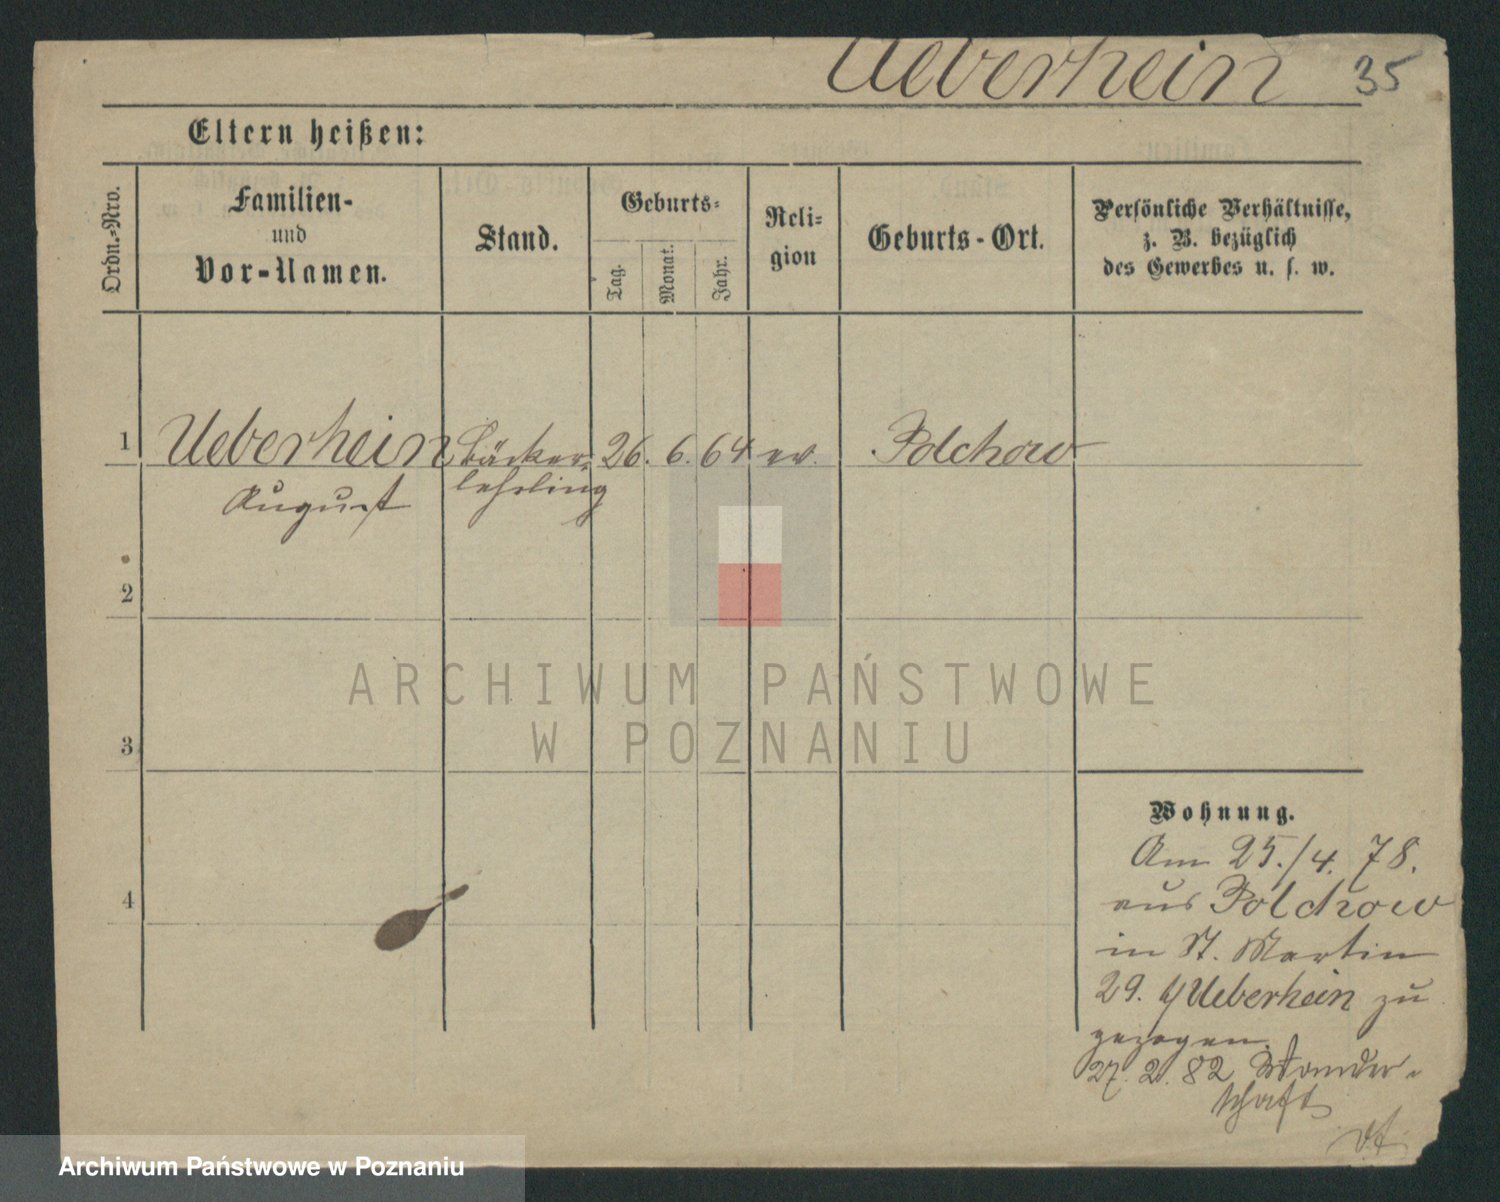 Ueberhein 35
Eltern heißen:
Ordn.-Nro.
Familien-
und
Vor-Namen.
Stand.
Geburts-
Tag.
Monat.
Jahr.
Reli-
gion
Geburts-Ort.
Persönliche Verhältnisse,
z. B. bezüglich
des Gewerbes u. s. w.
1 Ueberhein Bäcker- 26. 6. 64 ev. Polchow
August lehrling
2
3
4
Wohnung.
Am 25./4. 78.
aus Polchow
in St. Martin
29. Ueberhein zu
gezogen.
27. 2. 82 Wander-
schaft
ARCHIWUM PAŃSTWOWE
W POZNANIU
Archiwum Państwowe w Poznaniu